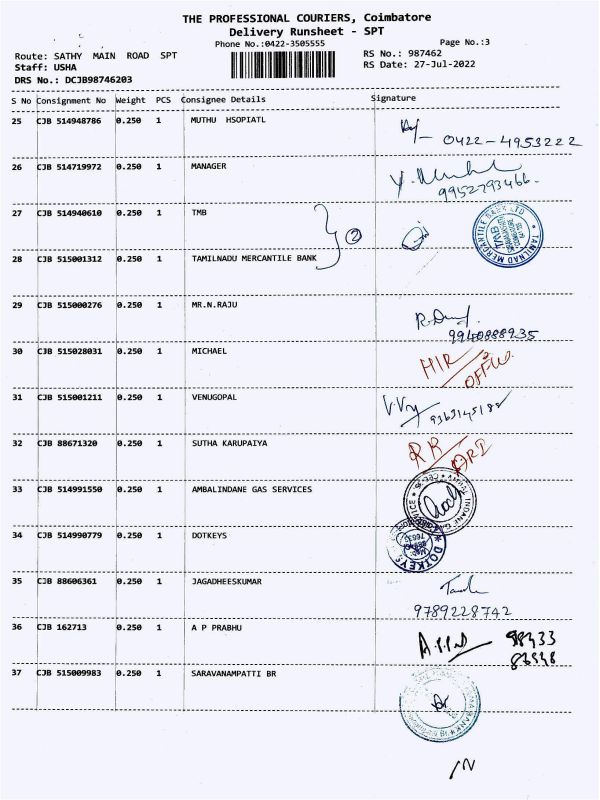 THE PROFESSIONAL COURIERS, Coimbatore
Delivery Runsheet - SPT
Phone No.:0422-3505555
Page No.:3
Route: SATHY MAIN ROAD SPT
RS No.: 987462
Staff: USHA
RS Date: 27-Jul-2022
DRS No.: DCJB98746203
S No Consignment No Weight PCS Consignee Details Signature
25 CJB 514948786 0.250 1 MUTHU HSOPIATL
0422-4953222
26 CJB 514719972 0.250 1 MANAGER
9952793466
27 CJB 514940610 0.250 1 TMB
2
TAMILNAD MERCANTILE BANK LTD
TMB
28 CJB 515001312 0.250 1 TAMILNADU MERCANTILE BANK
29 CJB 515000276 0.250 1 MR.N.RAJU
9940888935
30 CJB 515028031 0.250 1 MICHAEL
31 CJB 515001211 0.250 1 VENUGOPAL
32 CJB 88671320 0.250 1 SUTHA KARUPAIYA
RR
33 CJB 514991550 0.250 1 AMBALINDANE GAS SERVICES
34 CJB 514990779 0.250 1 DOTKEYS
DOTKEYS
35 CJB 88606361 0.250 1 JAGADHEESKUMAR
9789228742
36 CJB 162713 0.250 1 A P PRABHU
37 CJB 515009983 0.250 1 SARAVANAMPATTI BR